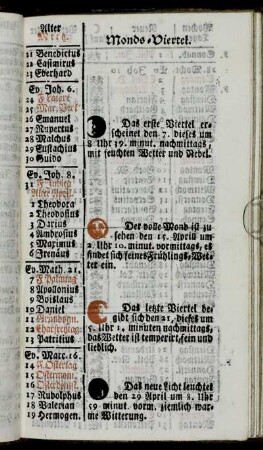 Alter
Monds-Viertel.
21 Benedictus
22 Casimirus
23 Eberhard
Ev. Joh. 6.
24
25
26 Emanuel
27 Rupertus
28 Malchus
29 Eustachius
30 Guido
Ev. Joh. 8.
31
1 Theodora
2 Theodosius
3 Darius
4 Ambrosius
5 Maximus
6 Irenäus
Ev. Math. 21.
8 Apollonius
9 Bogislaus
10 Daniel
13 Patritius
Ev. Marc. 16.
14 H. Ostertag
15 Ostermont.
16
17 Rudolphus
18 Valerian
19 Hermogen.
Das erste Viertel er-
scheinet den 7. dieses um
8 Uhr 39. minut. nachmittags,
mit feuchten Wetter und Nebel.
Der volle Mond ist zu
sehen den 15. April um
2. Uhr 10. minut. vormittags, es
findet sich feines Frühlings-Wet-
ter ein.
Das letzte Viertel be-
gibt sich den 21. dieses um
5. Uhr 1. minuten nachmittags,
das Wetter ist temperirt, fein und
lieblich.
Das neue Licht leuchtet
den 29 April um 8. Uhr
59 minut. vorm. ziemlich war-
me Witterung.